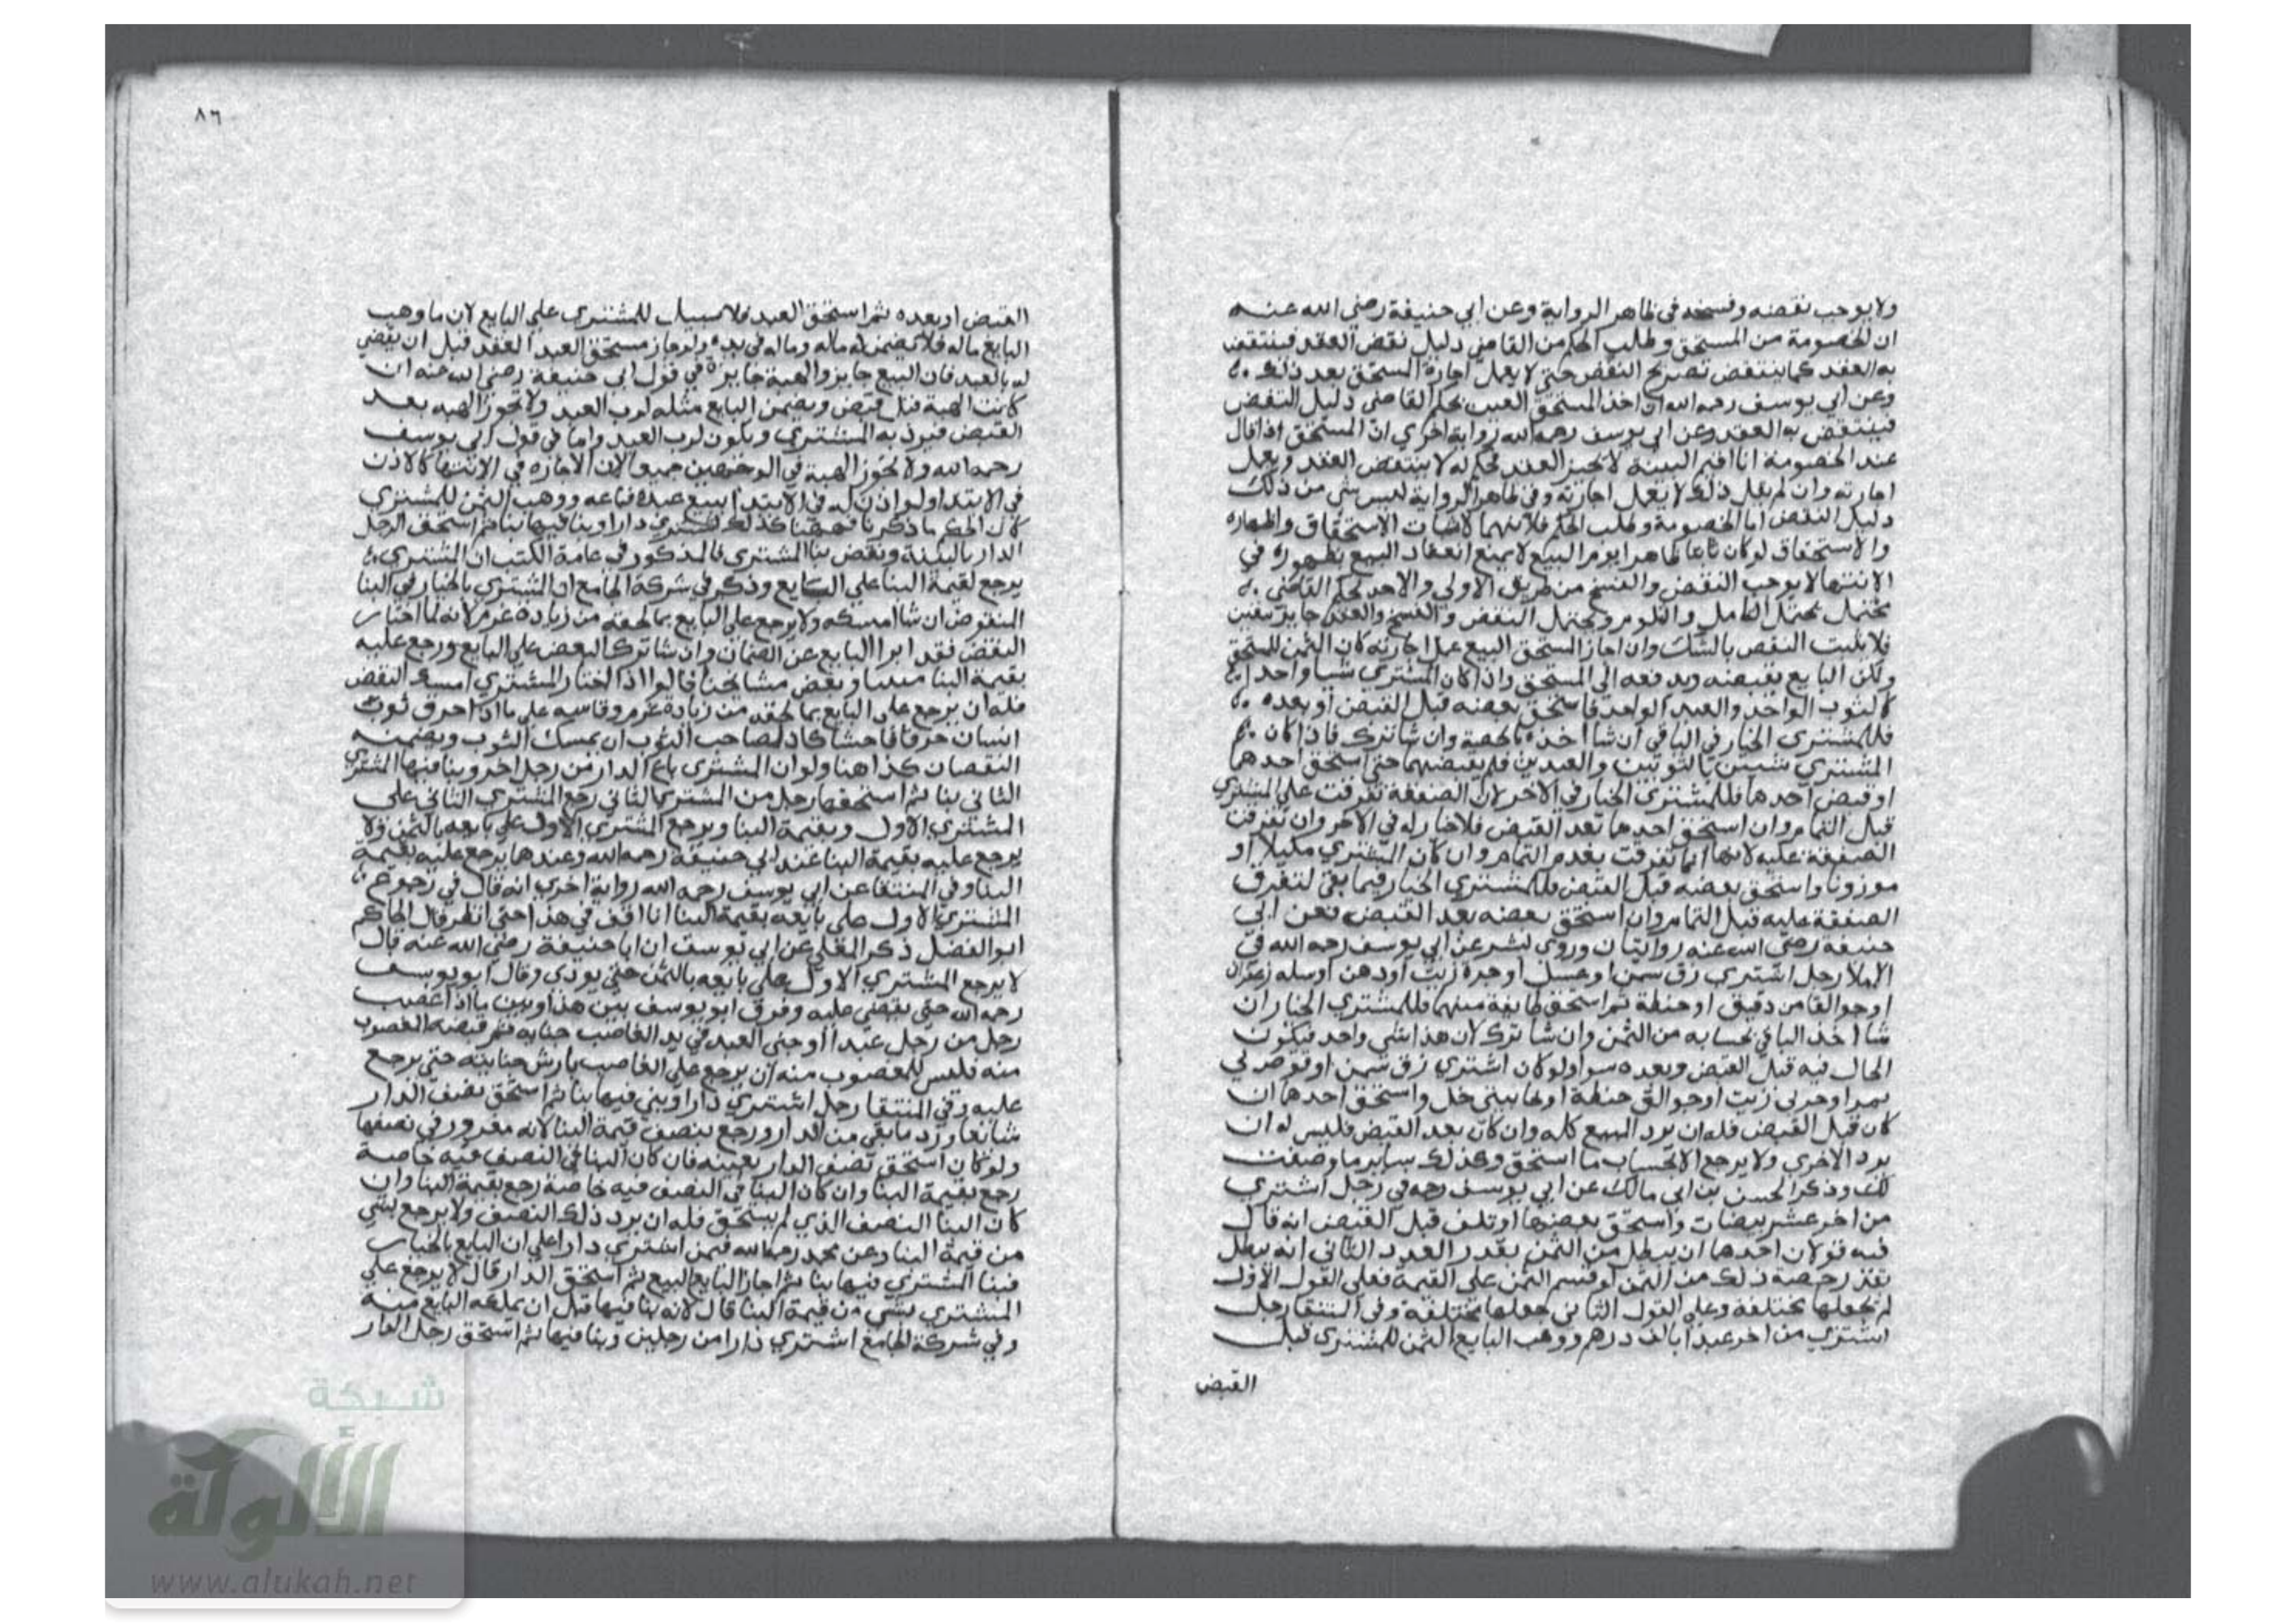 ولا يوجب نقضه وفسخه في ظاهر الرواية وعن ابي حنيفة رضي الله عنه
ان الخصومة من المستحق وطلب الحكم من القاضي دليل نقض العقد فينتقض
به العقد كما ينتقض بصريح النقض حتى لا يعمل اجازة المستحق بعد ذلك
وعن ابي يوسف رحمه الله اذا اخذ المستحق العين بحكم القاضي دليل النقض
فينتقض به العقد وعن ابي يوسف رحمه الله رواية اخري ان المستحق اذا قال
عند الخصومة انا اقيم البينة لا تجيز العقد فحكم له لا ينتقض العقد ويعمل
اجازته وان لم يقل ذلك لا يعمل اجازته وفي ظاهر الرواية ليس شي من ذلك
دليل النقض اما الخصومة وطلب الحكم فلانهما لاثبات الاستحقاق واظهاره
والاستحقاق لو كان ثابتا ظاهرا يوم البيع لا يمنع انعقاد البيع فظهوره في
الانتها لا يوجب النقض والفسخ من طريق الاولى والاخذ بحكم القاضي
يحتمل يحتمل التامل والتلوم ويحتمل النقض والفسخ والعقد جايز بيقين
فلا يثبت النقض بالشك وان اجاز المستحق البيع عمل اجازته كان الثمن للمستحق
ولكن البايع يقبضه ويدفعه الى المستحق واذا كان المشتري شيا واحدا
كالثوب الواحد والعبد الواحد فاستحق بعضه قبل القبض او بعده
فللمشتري الخيار في الباقي ان شا اخذه بالحصة وان شا ترك فاذا كان
المشتري شيين كالثوبين والعبدين فلم يقبضهما حتى استحق احدهما
او قبض احدهما فللمشتري الخيار في الاخر لان الصفقة تفرقت علي المشتري
قبل التمام وان استحق احدهما بعد القبض فلا خيار له في الاخر وان تفرقت
الصفقة عليه لانها انما تفرقت بعد التمام وان كان المشتري مكيلا او
موزونا واستحق بعضه قبل القبض فللمشتري الخيار فيما بقي لتفرق
الصفقة عليه قبل التمام وان استحق بعضه بعد القبض فعن ابي
حنيفة رضي الله عنه روايتان وروي بشر عن ابي يوسف رحمه الله في
الاملا رجل اشتري زق سمن او عسل او جرة زيت او دهن او سلة زعفران
او جوالقا من دقيق او حنطة ثم استحق طايفة منهما فللمشتري الخيار ان
شا اخذ الباقي بحسابه من الثمن وان شا ترك لان هذا شي واحد فيكون
الحال فيه قبل القبض وبعده سوا ولو كان اشتري زق سمن او قوصرتي
تمر او جرتي زيت او جوالقي حنطة او خابيتي خل واستحق احدهما ان
كان قبل القبض فله ان يرد البيع كله وان كان بعد القبض فليس له ان
يرد الاخري ولا يرجع الا بحساب ما استحق وكذلك ساير ما وصفت
لك وذكر الحسن بن ابي مالك عن ابي يوسف رحمه في رجل اشتري
من اخر عشر بيضات واستحق بعضها او تلف قبل القبض انه قال
فيه قولان احدهما ان يبطل من الثمن بقدر العدد الثاني انه يبطل
حصة ذلك من الثمن لو قسم الثمن على القيمة فعلي القول الاول
لم يجعلها مختلفة وعلى القول الثاني جعلها مختلفة وفي المنتقا رجل
اشتري من اخر عبدا بالف درهم ووهب البايع الثمن للمشتري قبل
القبض
٨٦
القبض او بعده ثم استحق العبد فلا سبيل للمشتري علي البايع لان ما وهب
البايع ماله فلا يضمن له ماله وماله في يده ولو جاز مستحق العبد العقد قبل ان يقضي
له بالعبد فان البيع جايز والهبة جايزة في قول ابي حنيفة رضي الله عنه ان
كانت الهبة قبل قبض ويضمن البايع مثله لرب العبد ولا تجوز الهبه بعد
القبض فيوذ به المشتري ويكون لرب العبد واما في قول ابي يوسف
رحمه الله ولا تجوز الهبة في الوجهين جميعا لان الاجازه في الانتها كالاذن
في الابتدا ولو اذن له في الابتدا ببيع عبده فباعه ووهب الثمن للمشتري
كان الحكم ما ذكرنا فههنا كذلك مشتري دارا وبنا فيها بنا ثم استحق الرجل
الدار بالبينة ونقض بنا المشتري فالمذكور في عامة الكتب ان المشتري
يرجع لقيمة البنا على البايع وذكر في شركة الجامع ان المشتري بالخيار في البنا
المنقوض ان شا امسكه ولا يرجع على البايع بما لحقه من زيادة غرم لانه لما اختار
النقض فقد ابرا البايع عن الضمان وان شا ترك البعض على البايع ورجع عليه
بقيمة البنا وبعض مشايخنا قالوا اذا اختار المشتري امسك النقض
فله ان يرجع على البايع بما لحقه من زيادة غرم وقاسه على ما اذا احرق ثوب
انسان حرقا فاحشا كان لصاحب الثوب ان يمسك الثوب ويضمنه
النقصان كذا هنا ولو ان المشتري باع الدار من رجل اخر وبنا فيها المشتري
الثاني بنا ثم استحقها رجل من المشتري الثاني رجع المشتري الثاني على
المشتري الاول وبقيمة البنا ويرجع المشتري الاول علي بايعه بالثمن ولا
يرجع عليه بقيمة البنا عند ابي حنيفة رحمه الله وعندهما يرجع عليه بقيمة
البنا وفي المنتقا عن ابي يوسف رحمه الله رواية اخري انه قال في رجوع
المشتري الاول على بايعه بقيمة البنا انا اقف في هذا حتى انظر قال الحاكم
ابو الفضل ذكر المعلي عن ابي يوسف ان ابا حنيفة رضي الله عنه قال
لا يرجع المشتري الاول على بايعه بالثمن حتى يودي وقال ابو يوسف
رحمه الله حتى يقضي عليه وفرق ابو يوسف بين هذا وبين ما اذا غصب
رجل من رجل عبدا او جنى العبد في يد الغاصب جناية ثم قبضه المغصوب
منه فليس للمغصوب منه ان يرجع علي الغاصب بارش جنايته حتى يرجع
عليه وفي المنتقا رجل اشتري دارا وبني فيها بنا ثم استحق نصف الدار
شائعا ورد ما بقي من الدار ورجع بنصف قيمة البنا لانه مغرور في نصفها
ولو كان استحق نصف الدار بعينه فان كان البنا في النصف فيه خاصة
رجع بقيمة البنا وان كان البنا في النصف فيه خاصة رجع بقيمة البنا وان
كان البنا النصف الذي لم يستحق فله ان يرد ذلك النصف ولا يرجع بشي
من قيمة البنا وعن محمد رحمه الله فيمن اشتري دارا علي ان البايع بالخيار
فبنا المشتري فيها بنا ثم اجاز البايع البيع ثم استحق الدار قال لا يرجع علي
المشتري بشي من قيمة البنا قال لانه بنا فيها قبل ان يملكه البايع منه
وفي شركة الجامع اشتري دارا من رجلين وبنا فيها ثم استحق رجل الدار
شبكة
الألوكة
www.alukah.net